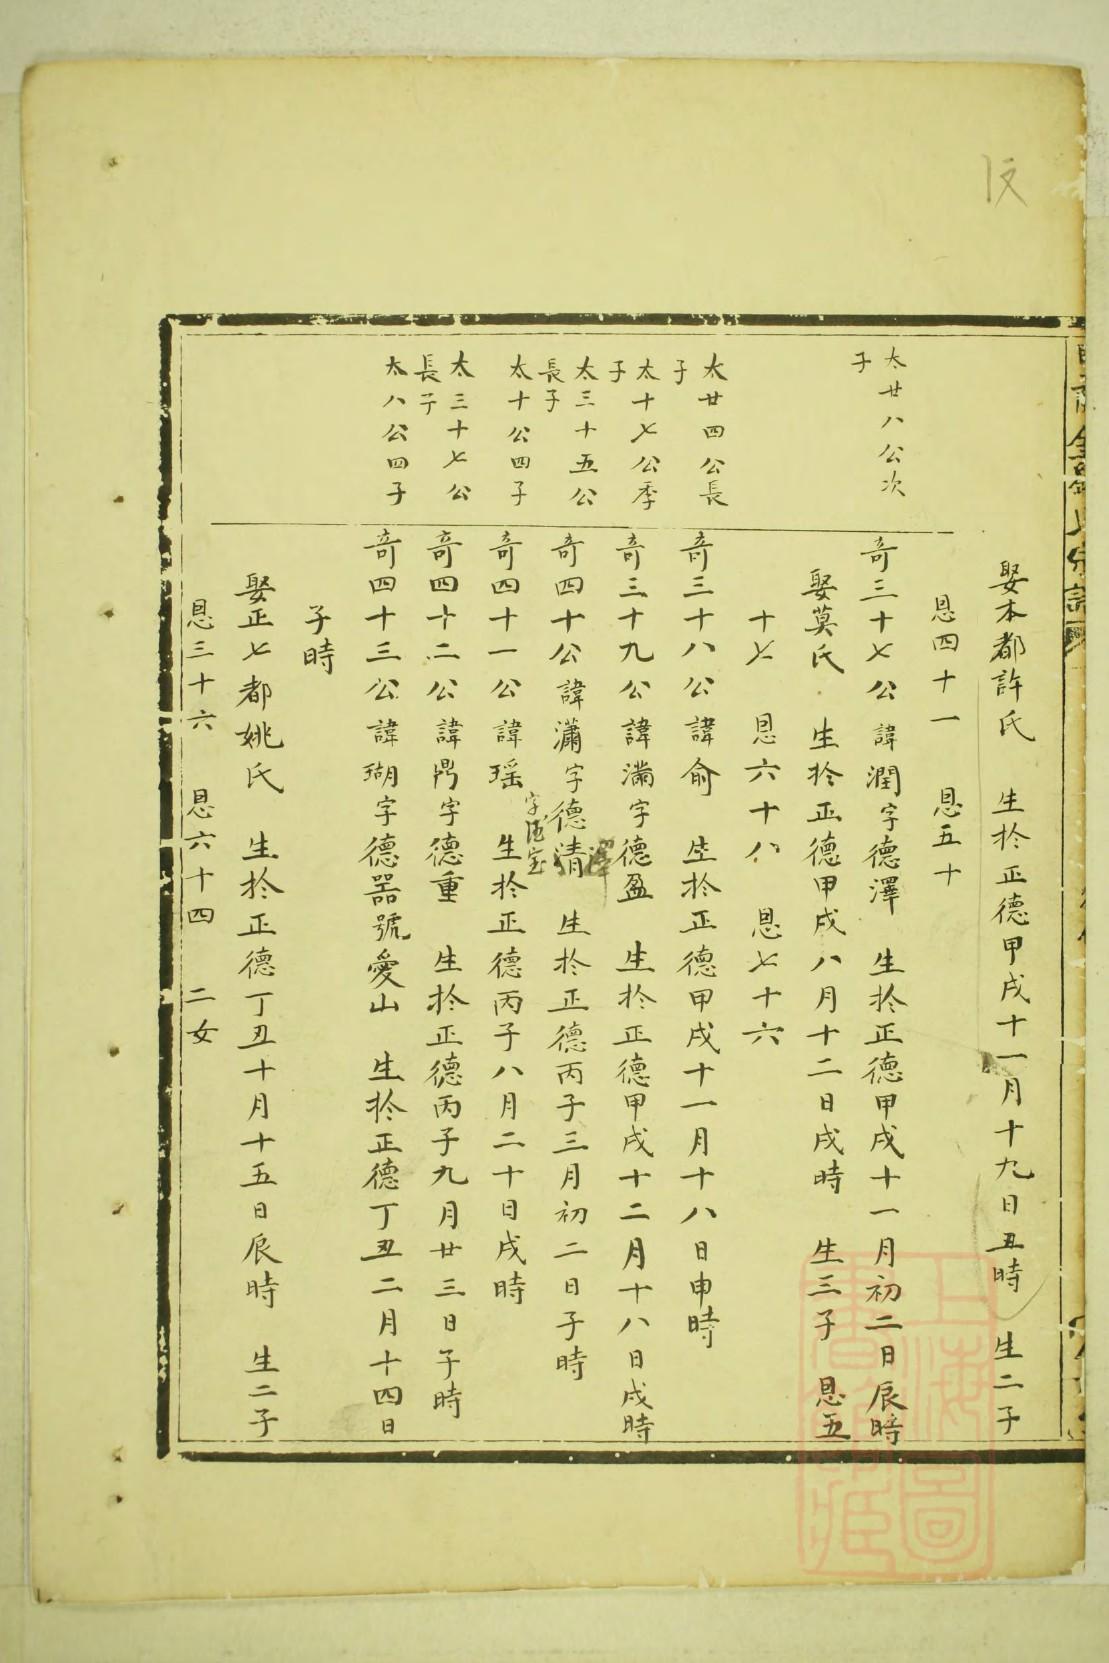 娶本都許氏　生扵正德甲戌十一月十九日丑時　生二子
恩四十一　恩五十
太廿八公次
子
奇三十七公諱潤字德澤　生扵正德甲戌十一月初二日辰時
娶莫氏　生扵正德甲戌八月十二日戌時　生三子　恩五
十七　恩六十八　恩七十六
太廿四公長
子
奇三十八公諱俞　生扵正德甲戌十一月十八日申時
太十七公季
子
奇三十九公諱滿字德盈　生扵正德甲戌十二月十八日戌時
太三十五公
長子
奇四十公諱瀟字德清　生扵正德丙子三月初二日子時
澤
太十公四子
奇四十一公諱瑶　生扵正德丙子八月二十日戌時
字德宝
太三十七公
長子
奇四十二公諱鼎字德重　生扵正德丙子九月廿三日子時
太八公四子
奇四十三公諱瑚字德器號愛山　生扵正德丁丑二月十四日
子時
娶正七都姚氏　生扵正德丁丑十月十五日辰時　生二子
恩三十六　恩六十四　二女
上海圖
書館藏